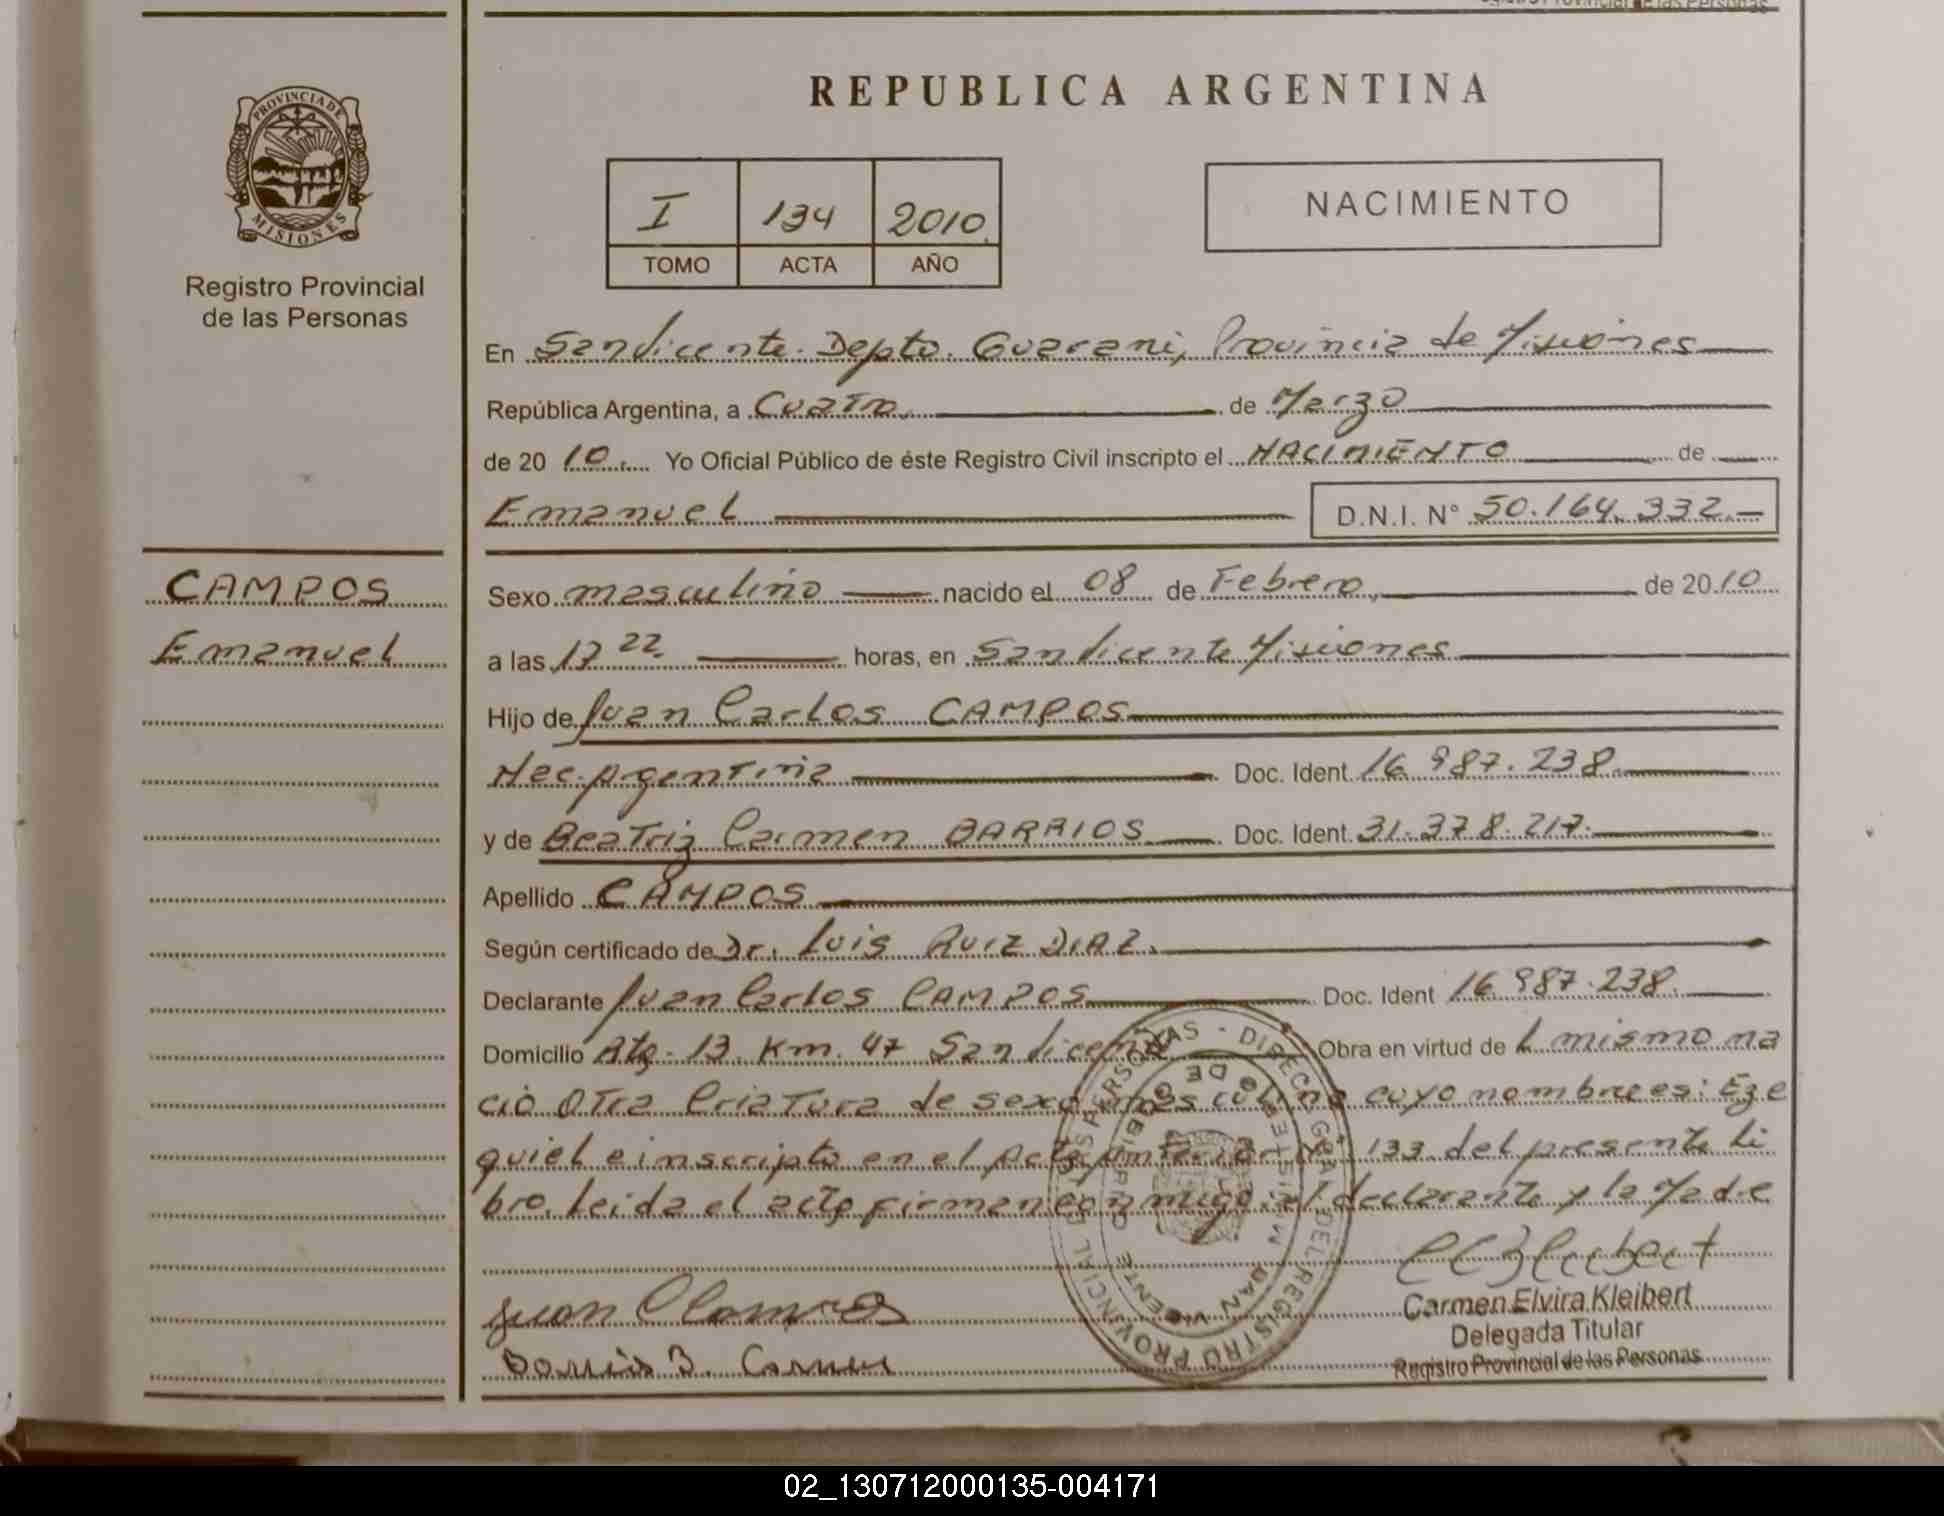 REPUBLICA ARGENTINA
PROVINCIA DE
MISIONES
Registro Provincial
de las Personas
I 134 2010
TOMO ACTA AÑO
NACIMIENTO
En San Vicente. Depto. Guarani, Provincia de Misiones
República Argentina, a Cuatro, de Marzo
de 20 10. Yo Oficial Público de éste Registro Civil inscripto el NACIMIENTO de
Emanuel D.N.I. N° 50.164.332.-
CAMPOS
Emanuel
Sexo masculino nacido el 08 de Febrero, de 20 10
a las 17 22 horas, en San Vicente Misiones
Hijo de Juan Carlos CAMPOS
Nac. Argentina Doc. Ident. 16.987.238.
y de Beatriz Carmen BARRIOS Doc. Ident. 31.378.217.
Apellido CAMPOS
Según certificado de Dr. Luis RUIZ DIAZ.
Declarante Juan Carlos CAMPOS Doc. Ident 16.987.238.
Domicilio Rta. 13. Km. 47 San Vicente Obra en virtud de L mismo na
ció otra criatura de sexo masculino cuyo nombre es: Eze
quiel e inscripto en el Acta anterior N° 133 del presente li
bro. Leida el acta firman conmigo el declarante y la Madre
Juan C Campos
Barrios B. Carmen
REGISTRO PROVINCIAL DE LAS PERSONAS - DIRECC. GRAL. DEL
SAN VICENTE
Carmen Elvira Kleibert
Delegada Titular
Registro Provincial de las Personas
02_130712000135-004171